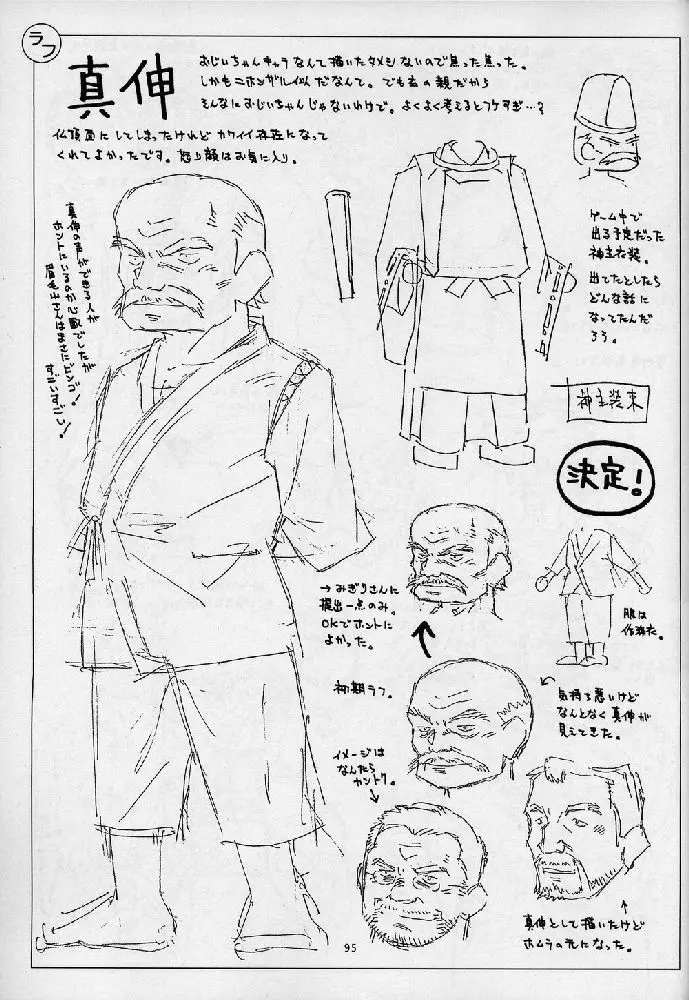 ラフ
真伸
おじいちゃんキャラなんて描いたタメシないので焦った焦った。
しかもニホンザル似だなんて。でも玄の親だから
そんなにおじいちゃんじゃないわけで。よくよく考えるとフケすぎ…?
仏頂面にしてしまったけれどカワイイ存在になって
くれてよかったです。怒り顔はお気に入り。
真伸の声ができる人が
ホントにいるのか心配でしたが
さんはまさにビンゴ!
すごいすごい!
ゲーム中で
出る予定だった
神主衣装。
出てたとしたら
どんな話に
なってたんだ
ろう。
神主装束
決定!
→みぎりさんに
提出一点のみ。
OKでホントに
よかった。
服は
作務衣。
初期ラフ。
気持ち悪いけど
なんとなく真伸が
見えてきた。
イメージは
なんたら
カントク。
真伸として描いたけど
ホムラの元になった。
95